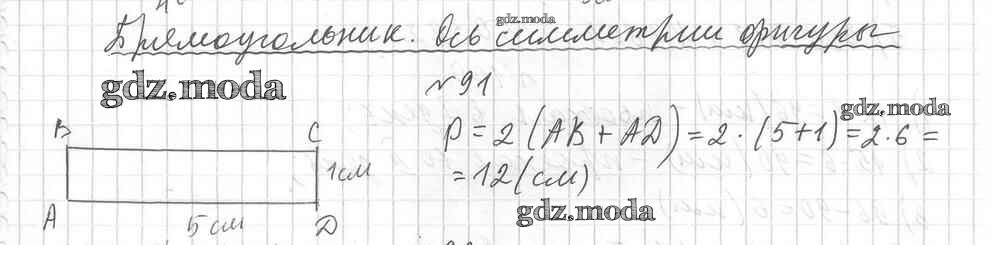 gdz.moda
Прямоугольник. Ось симметрии фигуры
gdz.moda
№91
gdz.moda
B C
P = 2 (AB + AD) = 2 · (5+1) = 2 · 6 =
1см
= 12 (см)
A 5 см D
gdz.moda